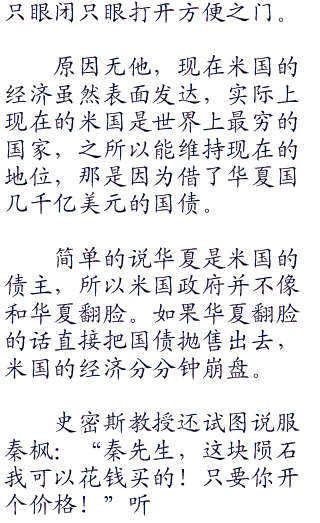 只眼闭只眼打开方便之门。
原因无他，现在米国的
经济虽然表面发达，实际上
现在的米国是世界上最穷的
国家，之所以能维持现在的
地位，那是因为借了华夏国
几千亿美元的国债。
简单的说华夏是米国的
债主，所以米国政府并不像
和华夏翻脸。如果华夏翻脸
的话直接把国债抛售出去，
米国的经济分分钟崩盘。
史密斯教授还试图说服
秦枫：“秦先生，这块陨石
我可以花钱买的！只要你开
个价格！”听